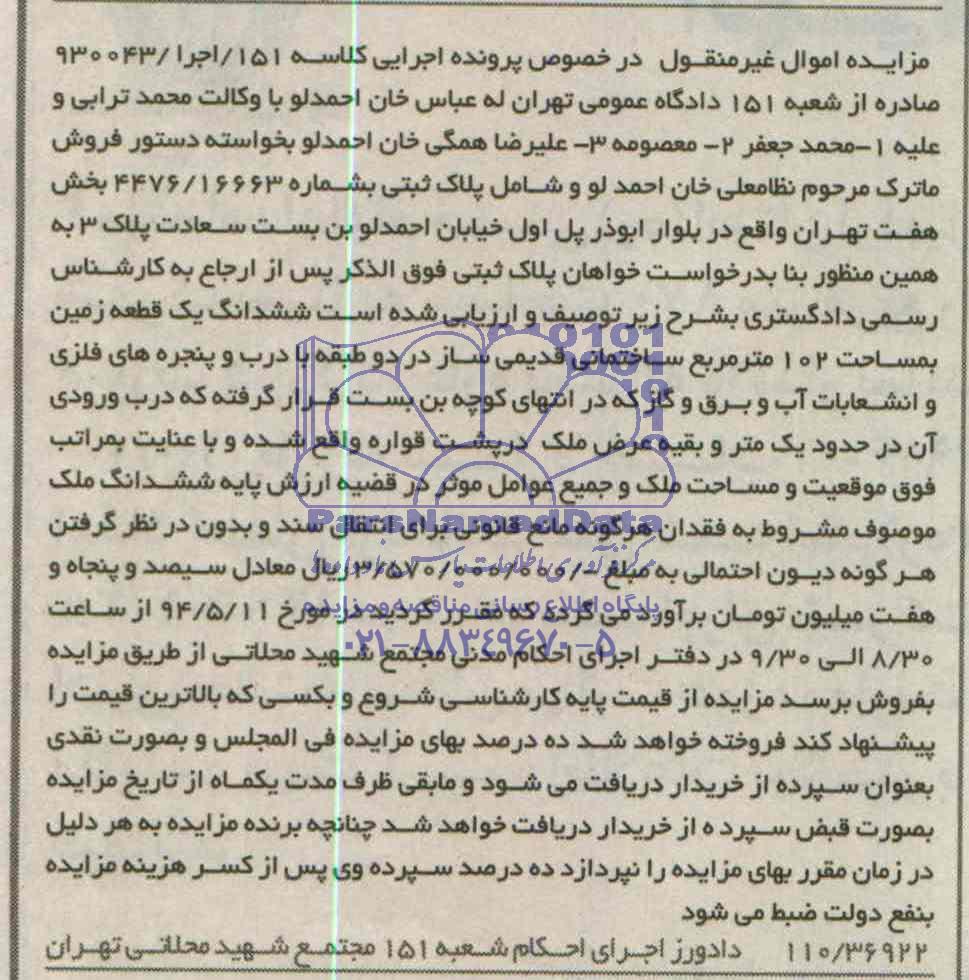 مزایـده اموال غیرمنقـول در خصوص پرونده اجرایی کلاسـه ۱۵۱/اجرا /۹۳۰۰۴۳
صادره از شعبه ۱۵۱ دادگاه عمومی تهران له عباس خان احمدلو با وکالت محمد ترابی و
علیه ۱-محمد جعفر ۲- معصومه ۳- علیرضا همگی خان احمدلو بخواسته دستور فروش
ماترک مرحوم نظامعلی خان احمد لو و شـامل پلاک ثبتی بشـماره ۴۴۷۶/۱۶۶۶۳ بخش
هفـت تهـران واقع در بلوار ابوذر پل اول خیابان احمدلو بن بسـت سـعادت پلاک ۳ به
همین منظور بنا بدرخواسـت خواهان پلاک ثبتی فوق الذکر پس از ارجاع به کارشـناس
رسـمی دادگستری بشـرح زیر توصیف و ارزیابی شده اسـت ششدانگ یک قطعه زمین
بمسـاحت ۱۰۲ مترمربع سـاختمانی قدیمی سـاز در دو طبقه با درب و پنجره های فلزی
و انشـعابات آب و بـرق و گاز که در انتهای کوچه بن بسـت قـرار گرفته که درب ورودی
آن در حدود یک متر و بقیه عرض ملک درپشـت قواره واقع شـده و با عنایت بمراتب
فوق موقعیت و مسـاحت ملک و جمیع عوامل موثر در قضیه ارزش پایه ششـدانگ ملک
موصوف مشـروط به فقدان هرگونه مانع قانونی برای انتقال سند و بدون در نظر گرفتن
هـر گونه دیـون احتمالی به مبلغ -/۳/۵۷۰/۰۰۰/۰۰۰ریال معادل سـیصد و پنجاه و
هفـت میلیون تومـان برآورد می گردد که مقـرر گردید در مورخ ۹۴/۵/۱۱ از سـاعت
۸/۳۰ الـی ۹/۳۰ در دفتـر اجرای احکام مدنی مجتمع شـهید محلاتـی از طریق مزایده
بفروش برسـد مزایده از قیمت پایه کارشناسـی شـروع و بکسـی که بالاترین قیمت را
پیشـنهاد کند فروخته خواهد شـد ده درصد بهای مزایده فی المجلس و بصورت نقدی
بعنوان سـپرده از خریدار دریافت می شود و مابقی ظرف مدت یکمـاه از تاریخ مزایده
بصورت قبض سـپرد ه از خریدار دریافت خواهد شـد چنانچه برنده مزایده به هر دلیل
در زمان مقرر بهای مزایده را نپردازد ده درصد سـپرده وی پس از کسـر هزینه مزایده
بنفع دولت ضبط می شود
۱۱۰/۳۶۹۲۲ دادورز اجـرای احـکام شـعبه ۱۵۱ مجتمـع شـهید محلاتـی تهـران
ParsNamadData
پایگاه اطلاع رسانی مناقصه و مزایده
۰۲۱-۸۸۳۴۹۶۷۰-۵